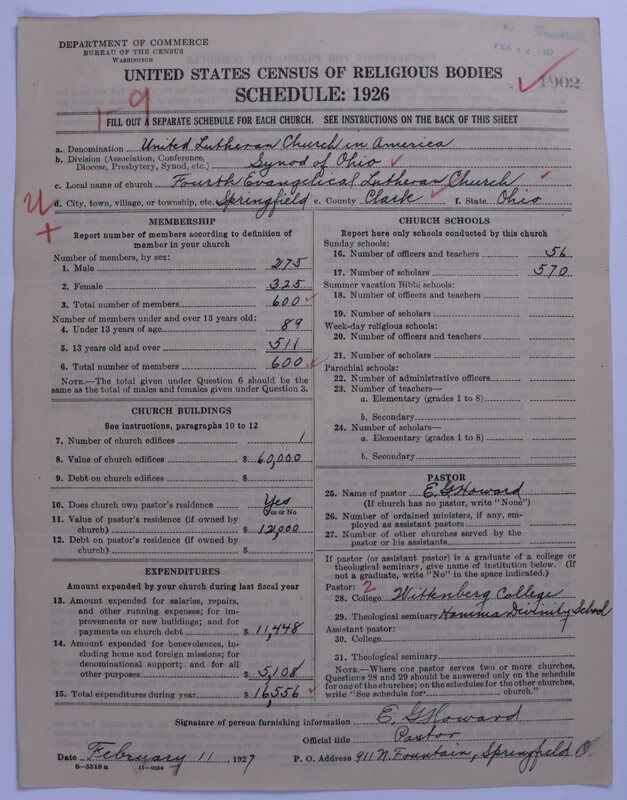 DEPARTMENT OF COMMERCE
BUREAU OF THE CENSUS
WASHINGTON
UNITED STATES CENSUS OF RELIGIOUS BODIES
1902
SCHEDULE: 1926
1-9
FILL OUT A SEPARATE SCHEDULE FOR EACH CHURCH. SEE INSTRUCTIONS ON THE BACK OF THIS SHEET
a. Denomination United Lutheran Church in America
b. Division (Association, Conference, Diocese, Presbytery, Synod, etc.) Synod of Ohio
c. Local name of church Fourth Evangelical Lutheran Church
d. City, town, village, or township, etc. Springfield e. County Clark f. State Ohio
MEMBERSHIP
Report number of members according to definition of
member in your church
Number of members, by sex:
1. Male 275
2. Female 325
3. Total number of members 600
Number of members under and over 13 years old:
4. Under 13 years of age 89
5. 13 years old and over 511
6. Total number of members 600
NOTE.—The total given under Question 6 should be
same as the total of males and females given under Question 3.
CHURCH BUILDINGS
See instructions, paragraphs 10 to 12
7. Number of church edifices 1
8. Value of church edifices $ 60,000
9. Debt on church edifices $
10. Does church own pastor's residence Yes
Yes or No
11. Value of pastor's residence (if owned by
church) $ 12,000
12. Debt on pastor's residence (if owned by
church) $
EXPENDITURES
Amount expended by your church during last fiscal year
13. Amount expended for salaries, repairs,
and other running expenses; for im-
provements or new buildings; and for
payments on church debt $ 11,448
14. Amount expended for benevolences, in-
cluding home and foreign missions; for
denominational support; and for all
other purposes $ 5,108
15. Total expenditures during year $ 16,556
CHURCH SCHOOLS
Report here only schools conducted by this church
Sunday schools:
16. Number of officers and teachers 56
17. Number of scholars 570
Summer vacation Bible schools:
18. Number of officers and teachers
19. Number of scholars
Week-day religious schools:
20. Number of officers and teachers
21. Number of scholars
Parochial schools:
22. Number of administrative officers
23. Number of teachers—
a. Elementary (grades 1 to 8)
b. Secondary
24. Number of scholars—
a. Elementary (grades 1 to 8)
b. Secondary
PASTOR
25. Name of pastor E. G. Howard
(If church has no pastor, write "None")
26. Number of ordained ministers, if any, em-
ployed as assistant pastors
27. Number of other churches served by the
pastor or his assistants
If pastor (or assistant pastor) is a graduate of a college or
theological seminary, give name of institution below. (If
not a graduate, write "No" in the space indicated.)
Pastor: 2
28. College Wittenberg College
29. Theological seminary Hamma Divinity School
Assistant pastor:
30. College
31. Theological seminary
NOTE.—Where one pastor serves two or more churches,
Questions 28 and 29 should be answered only on the schedule
for one of the churches; on the schedules for the other churches,
write "See schedule for church."
Signature of person furnishing information E. G. Howard
Official title Pastor
Date February 11, 1927 P. O. Address 911 N. Fountain, Springfield O.
8-5518 a